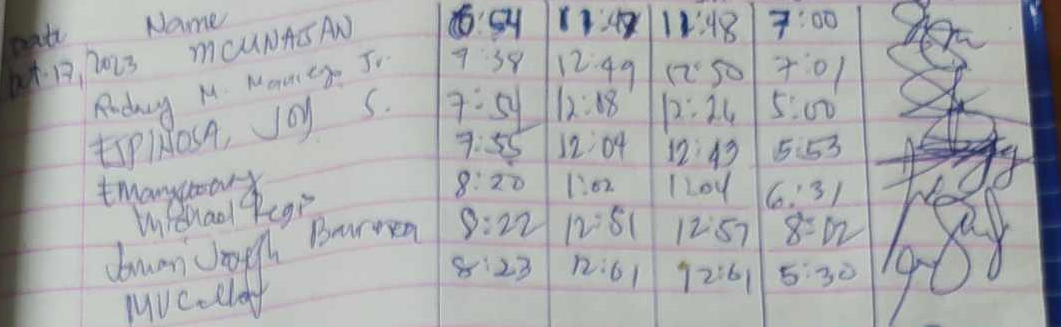 Date Name
Oct. 17, 2023 MCUNAJAN 6:54 11:47 11:48 7:00
Rodney M. Maniego Jr. 7:38 12:49 12:50 7:01
ESPINOSA, JOY S. 7:54 12:18 12:26 5:00
7:55 12:04 12:43 5:53
Michael Regi 8:20 1:02 1:04 6:31
Joseph 8:22 12:51 12:57 8:02
8:23 12:01 12:01 5:30